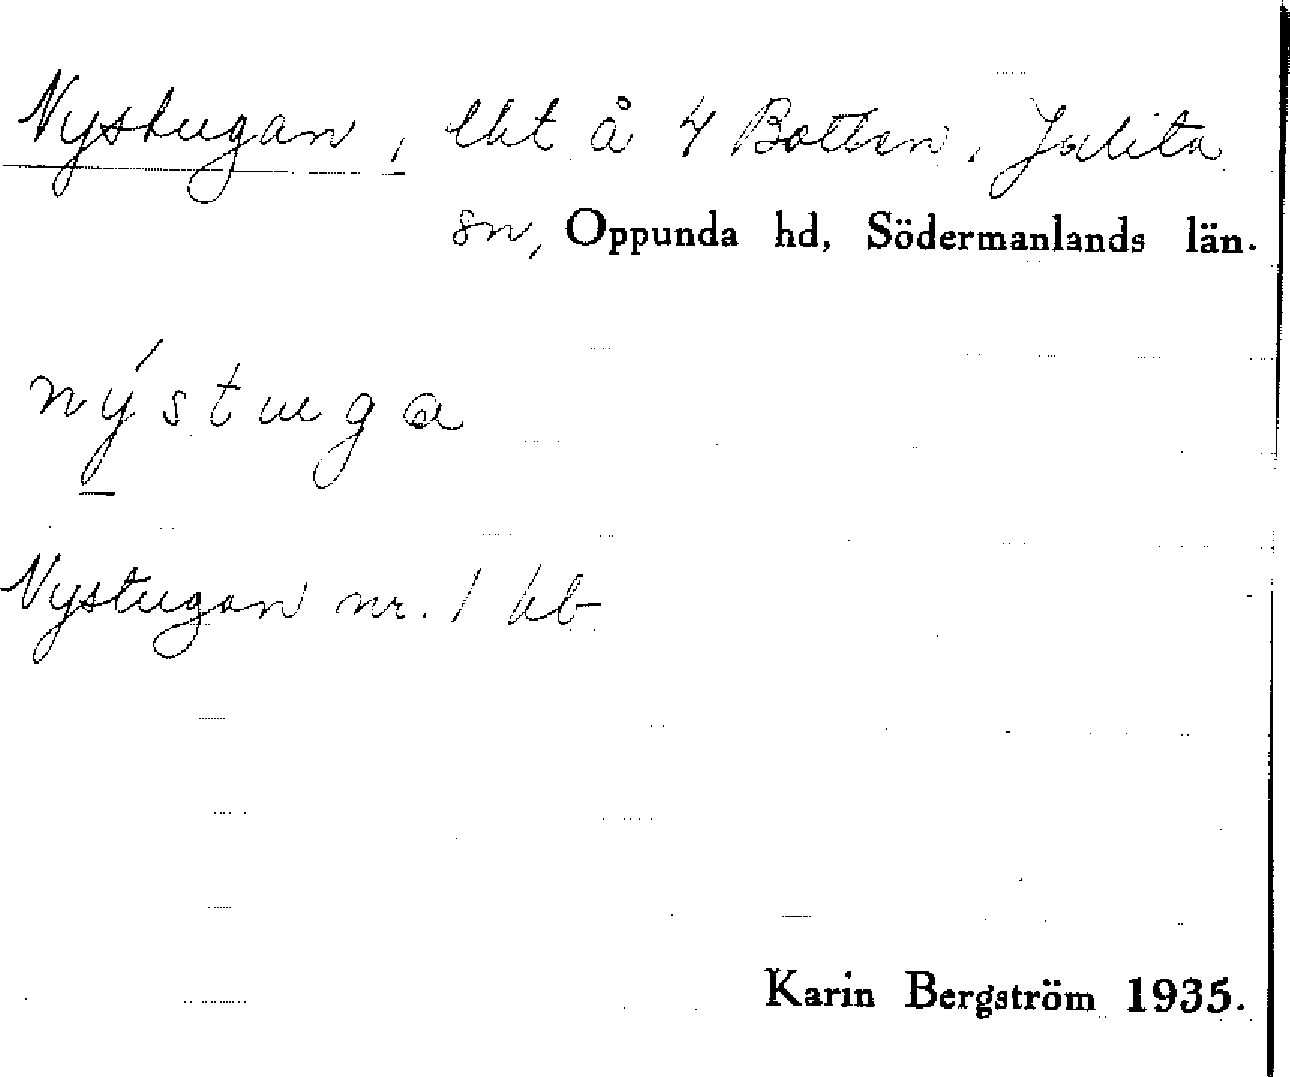 Nystugan, lht å 4 Botten, Julita
sn, Oppunda hd, Södermanlands län.
nýstuga
Nystugan nr. 1 kb
Karin Bergström 1935.